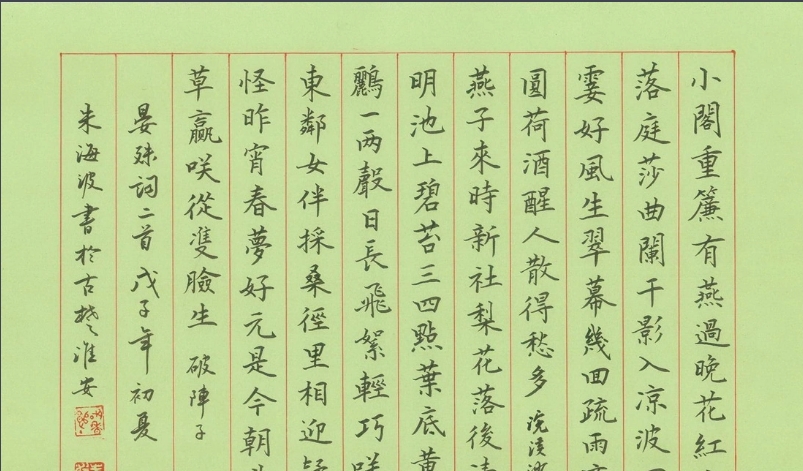 小閣重簾有燕過晚花紅
落庭莎曲闌干影入凉波
霎好風生翠幕幾回疏雨
圓荷酒醒人散得愁多 浣溪
燕子來時新社梨花落後
明池上碧苔三四點葉底黄
鸝一两聲日長飛絮輕巧
東鄰女伴採桑徑里相迎
怪昨宵春夢好元是今朝
草贏咲從雙臉生 破陣子
晏殊詞二首戊子年初夏
朱海波書於古楚淮安